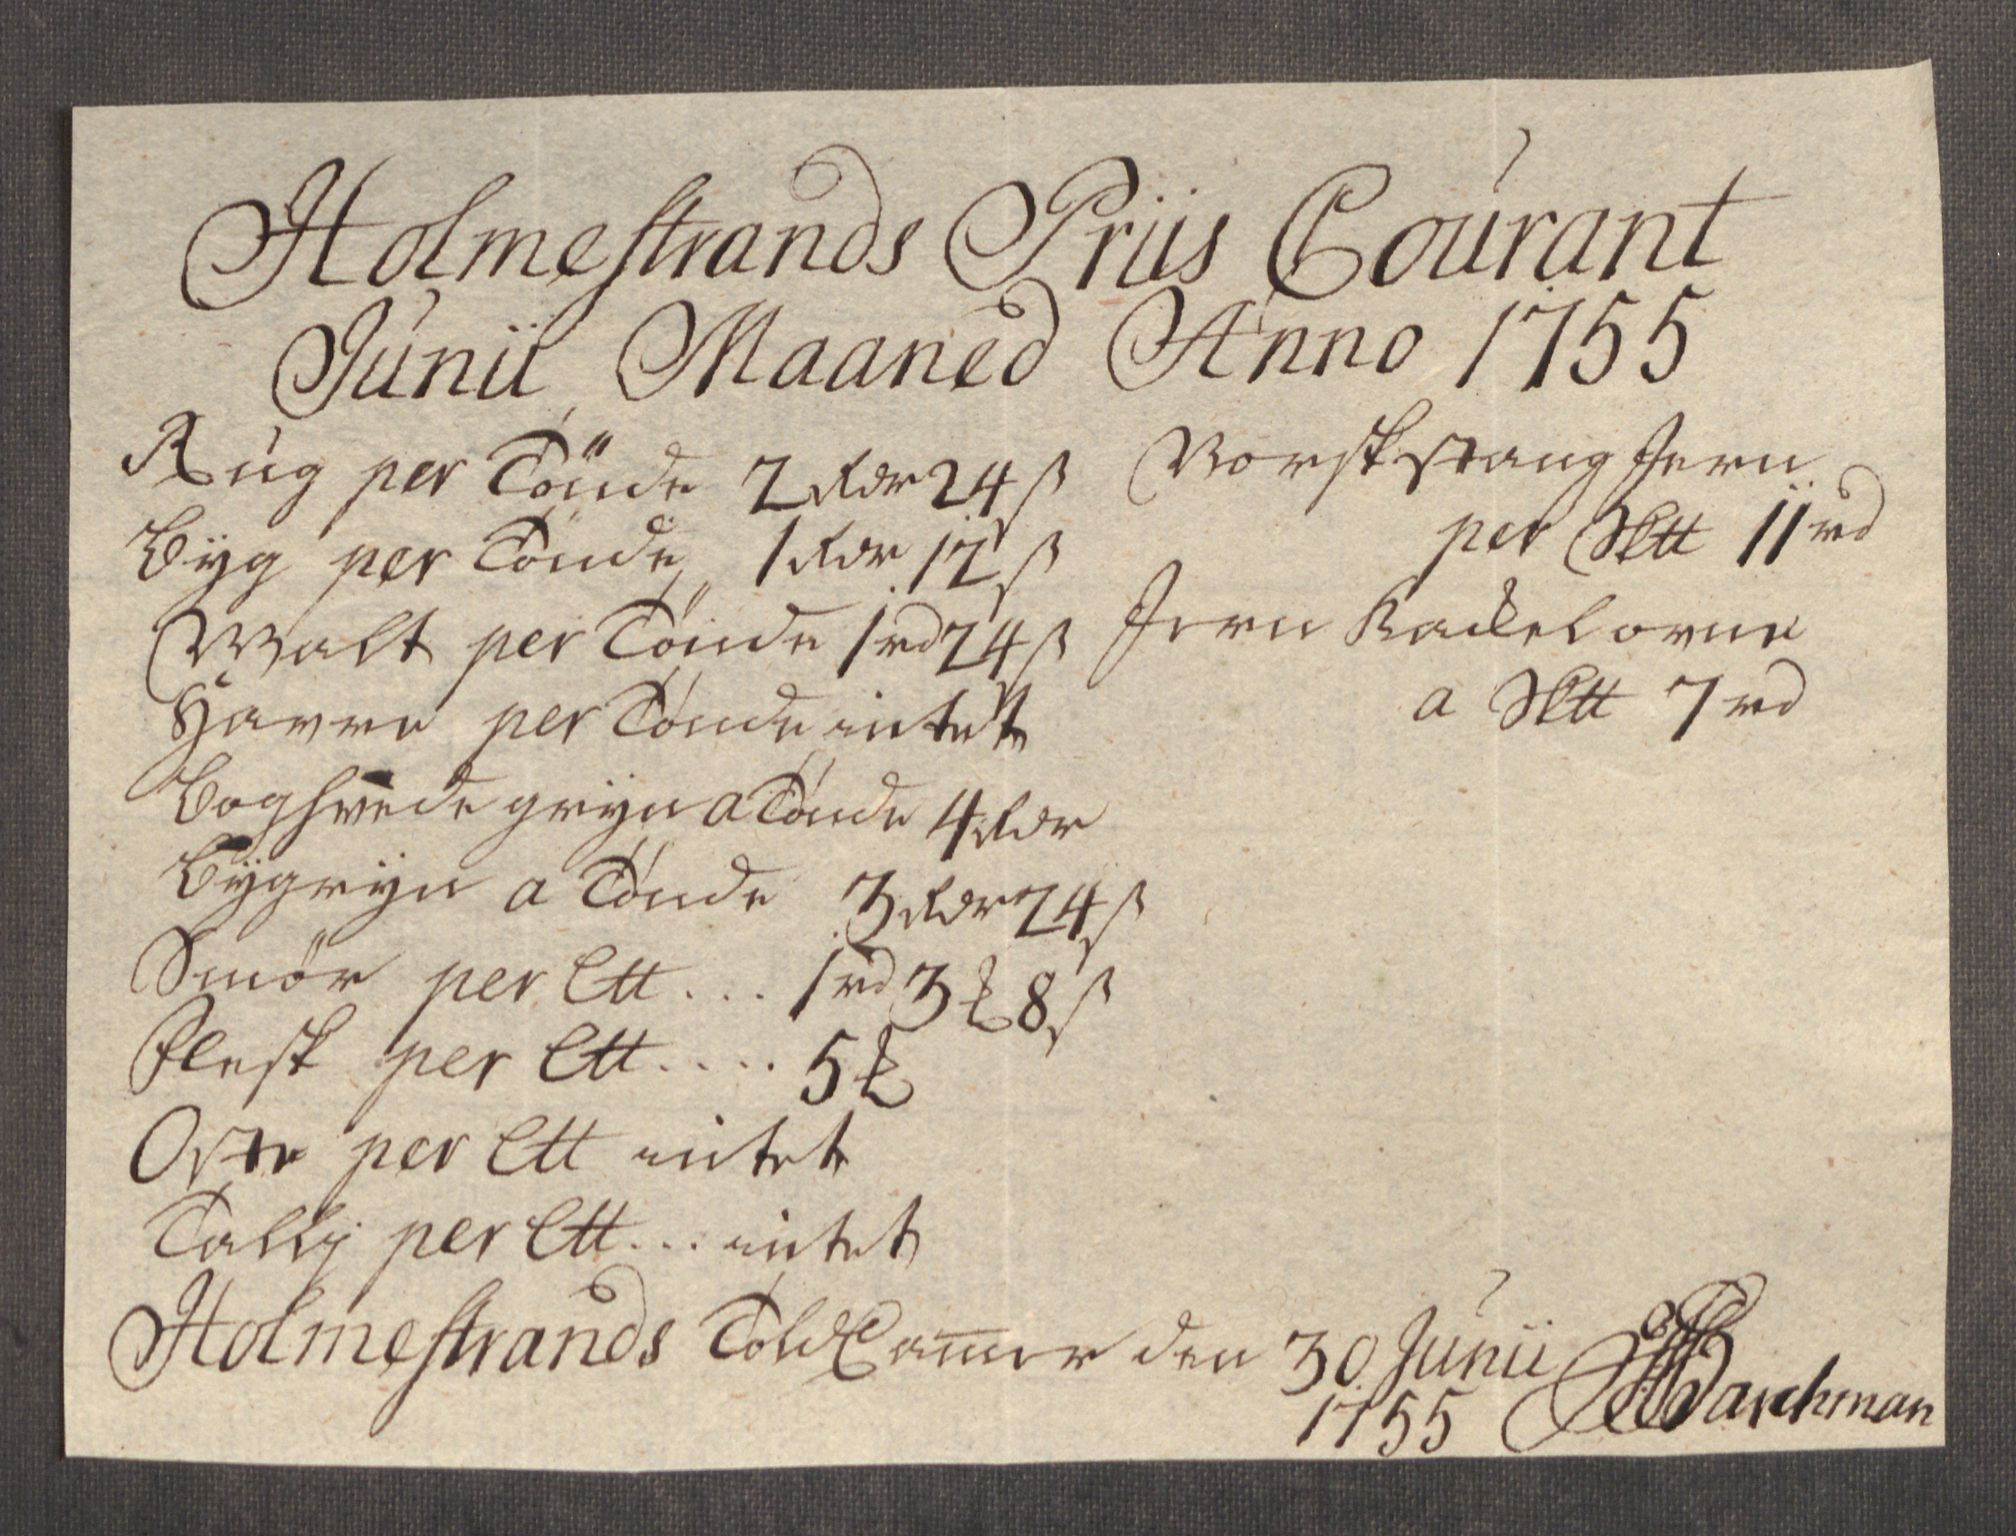 Holmestrands Priis Courant
Junii Maaned Anno 1755
Rug per Tönde 2 Rdr 24 ß
Byg per Tönde 1 Rdr 12 ß
Malt per Tönde 1 rd 24 ß
Havre per Tönde intet
Boghvede gryn a Tönde 4 Rdr
Bygryn a Tönde 3 Rdr 24 ß
Smör per Ltt ... 1 rd 3 ℔ 8 ß
Flesk per Ltt .... 5 ℔
Oste per Ltt intet
Tallij per Ltt ... intet
Norsk stang Jern
per Sktt 11 rd
Jern Kackelovne
a Sktt 7 rd
Holmestrands Told Cam̅er den 30 Junii
1755 Barchman